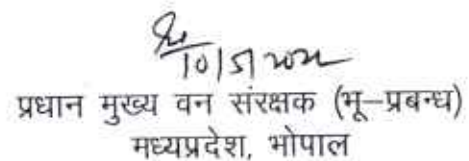 10/5/2022
प्रधान मुख्य वन संरक्षक (भू–प्रबन्ध)
मध्यप्रदेश, भोपाल